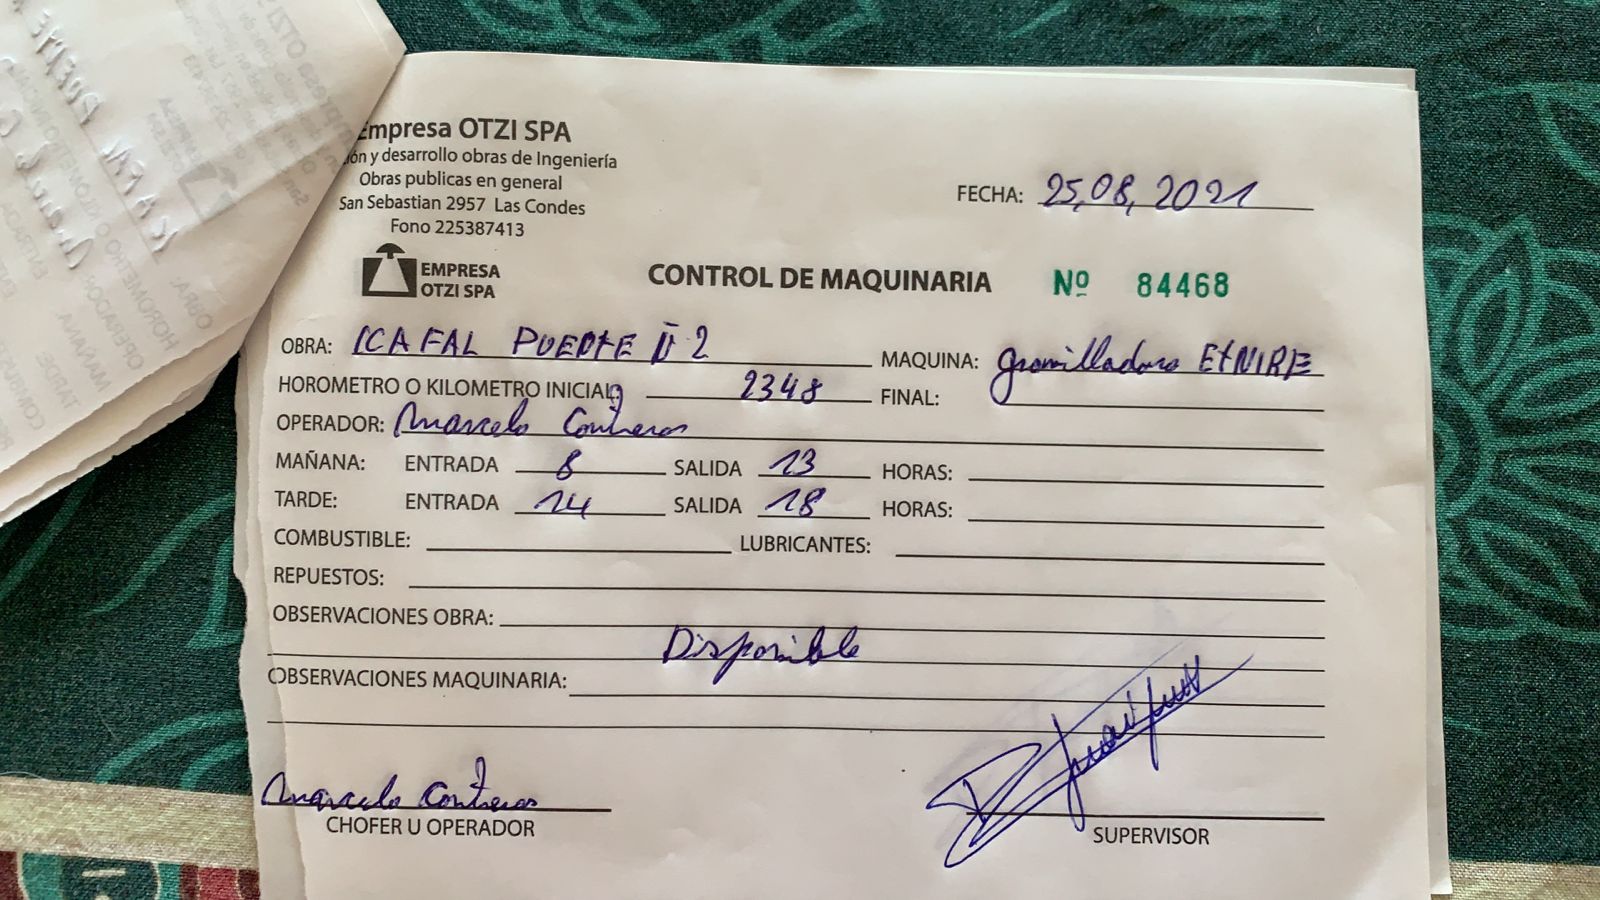 Empresa OTZI SPA
ión y desarrollo obras de Ingeniería
Obras publicas en general
San Sebastian 2957 Las Condes
Fono 225387413
FECHA: 25,08,2021
EMPRESA
OTZI SPA
CONTROL DE MAQUINARIA Nº 84468
OBRA: ICAFAL PUENTE N 2 MAQUINA: gravilladora ETNIRE
HOROMETRO O KILOMETRO INICIAL: 2348 FINAL:
OPERADOR: Marcelo Contreras
MAÑANA: ENTRADA 8 SALIDA 13 HORAS:
TARDE: ENTRADA 14 SALIDA 18 HORAS:
COMBUSTIBLE: LUBRICANTES:
REPUESTOS:
OBSERVACIONES OBRA:
Disponible
OBSERVACIONES MAQUINARIA:
Marcelo Contreras
CHOFER U OPERADOR
SUPERVISOR